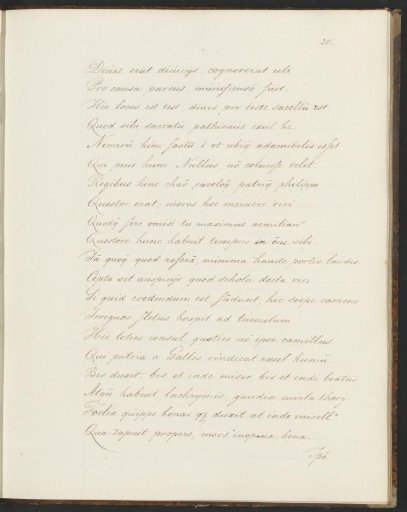 20.
Dives erat divicijs cognoverat uti
Pro causa parcus, munificusq fuit.
Hic locus est test dives pro teste sacellū est
Quod sibi sacratū pathinius exel hc.
Nemini hinc factū ē vt ubiq adamabilis esset
Qui puis hunc, Nullus, nō coluisse velet
Regibus hinc charꝰ carolōq patriq philippo
Questor erat, mores hoc meruere viri
Quodq fere omisi tu maximus aemilianꝰ
Questore hunc habuit tempus in ōne sibi.
Iā quoq quod referā, minima haude portio laudis
Cepta sit auspicijs quod schola docta viri
Si quid credendum est stedunt, hic soepe camens
Irriguos fletus hospit ad tumulum
Hic toties consul, quoties nō ipse camillus
Qui patria a Gallis vindicat exsel humū.
Bis duxit, bis et inde miser bis et inde beatus
Alterū habuit lachrymis, gaudia mixta thory
Foelix quippe bonas qz duxit at inde misellꝰ
Qua rapuit propers, mors inopina bona.
Ipē